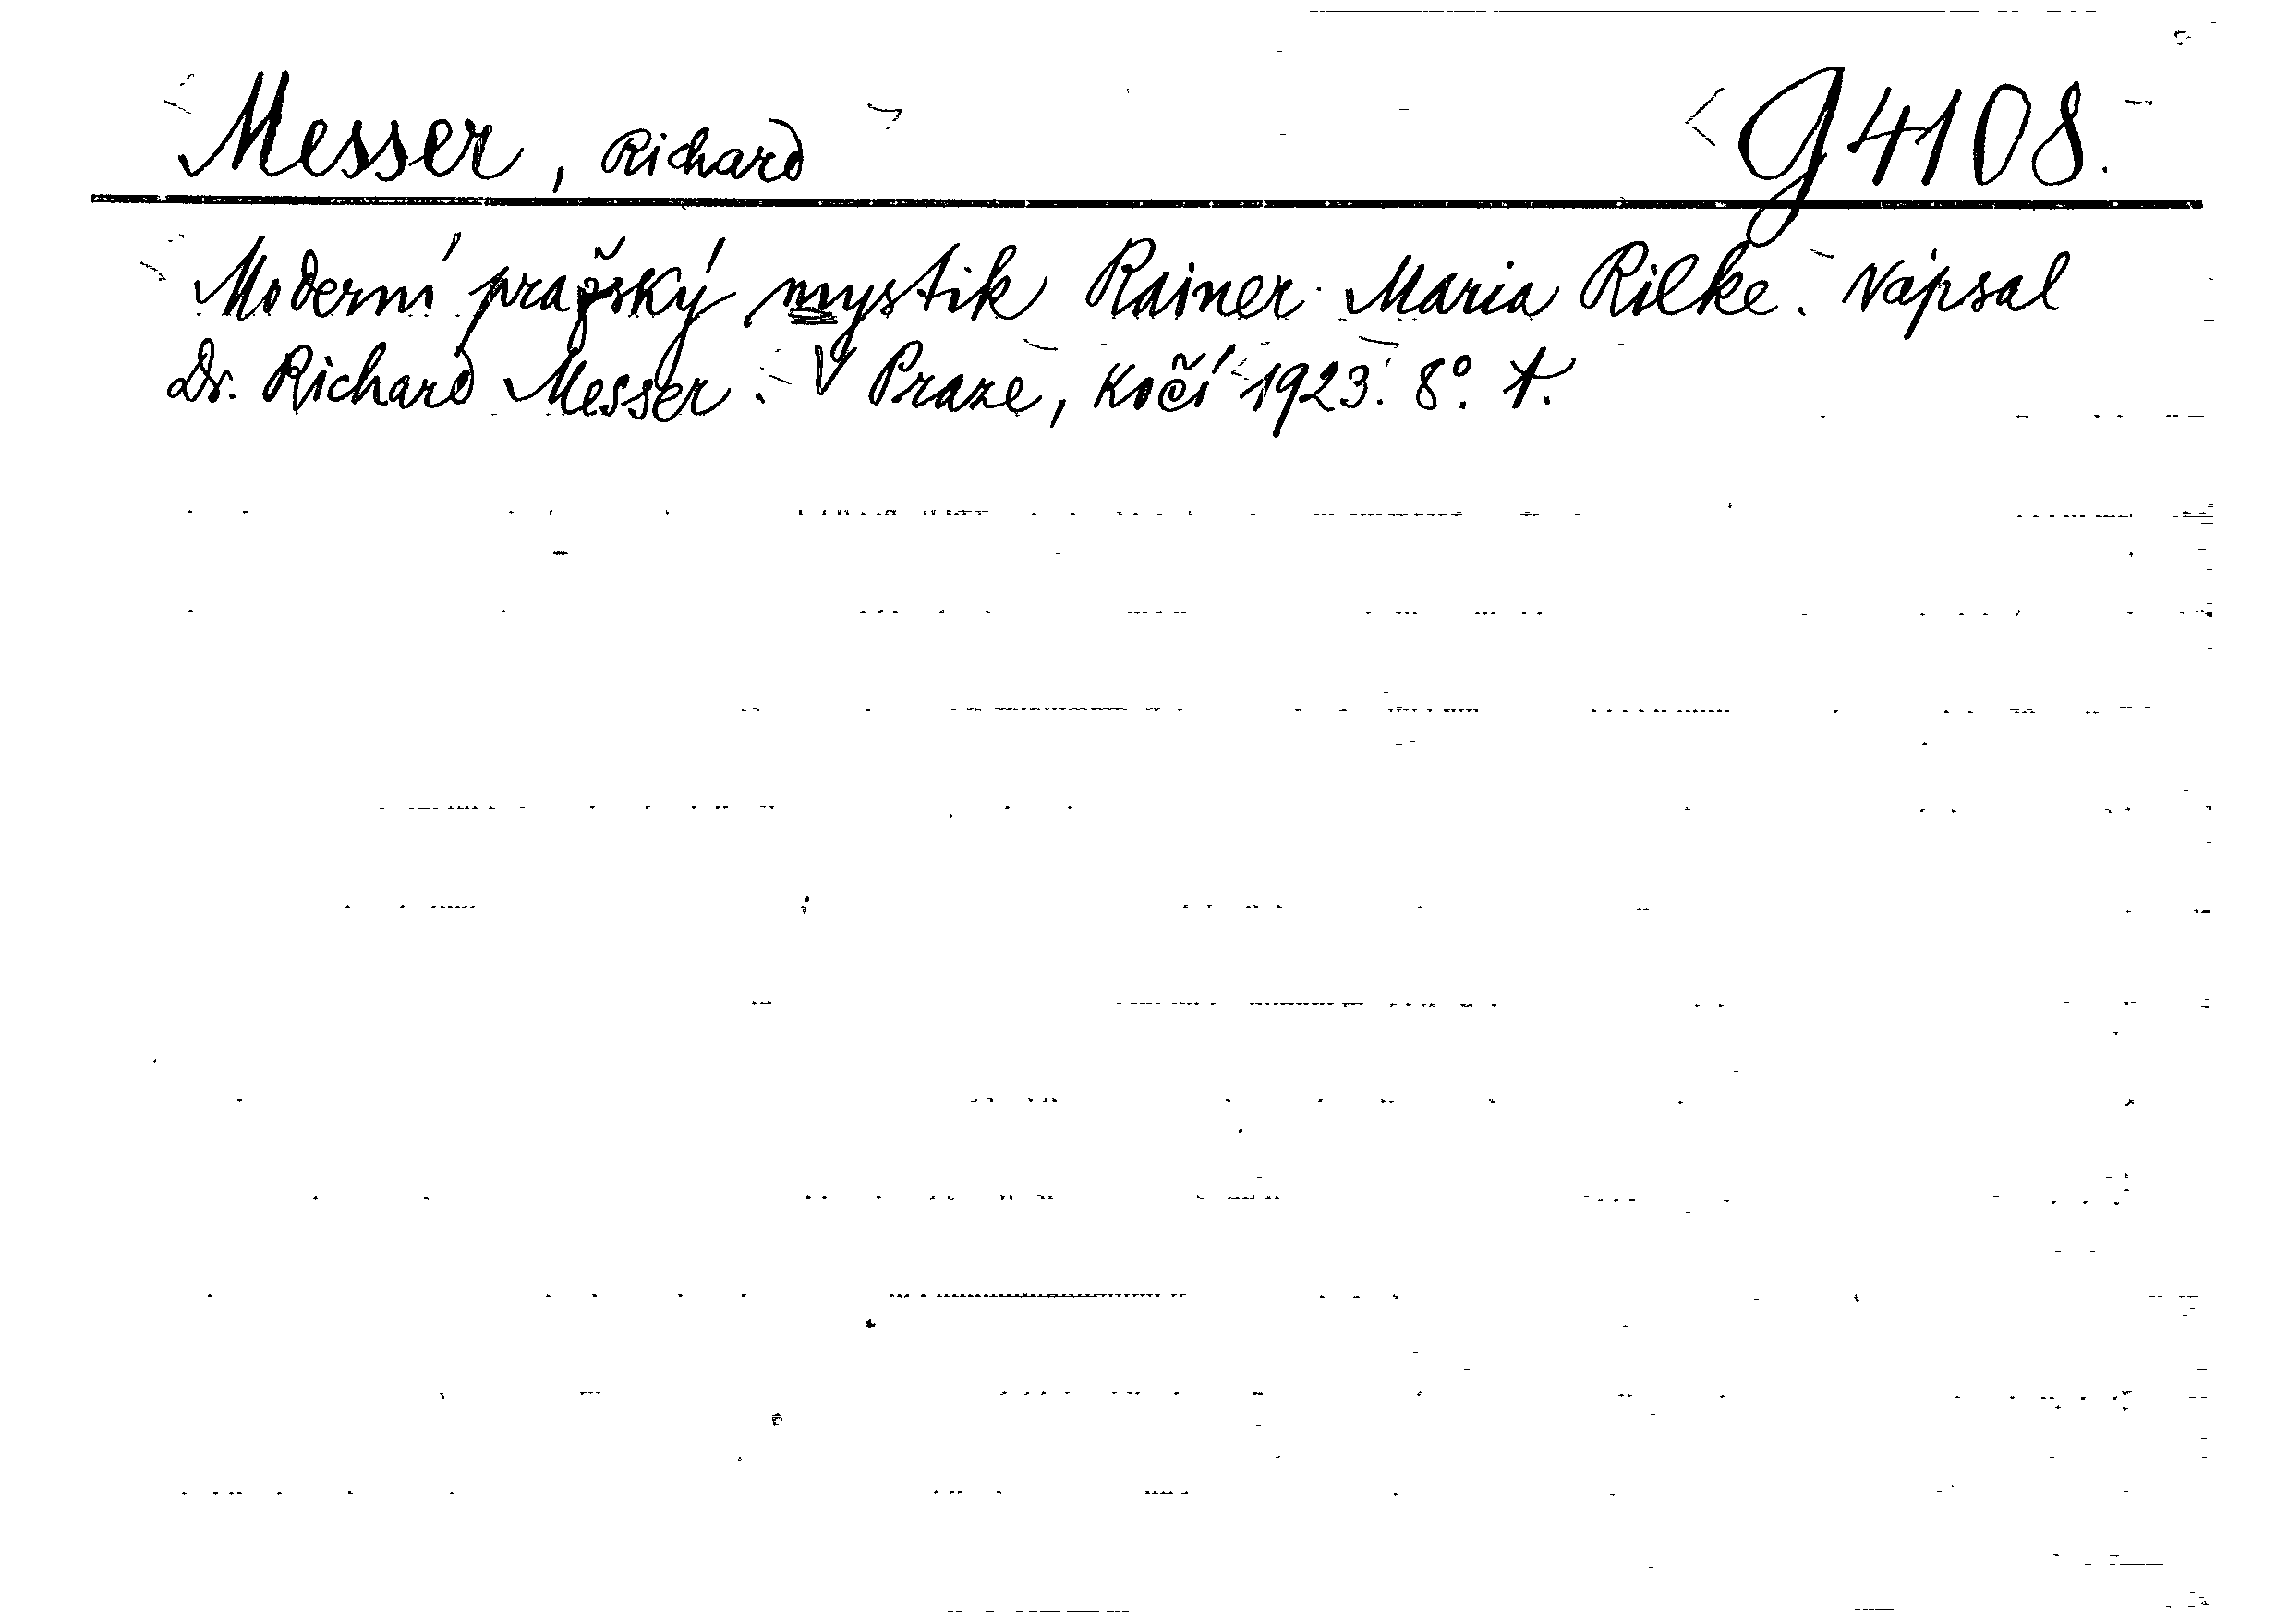 Messer, Richard
G 4108.
Moderní pražský mystik Rainer Maria Rilke. Napsal
Dr. Richard Messer. V Praze, Kočí 1923. 8°. t.